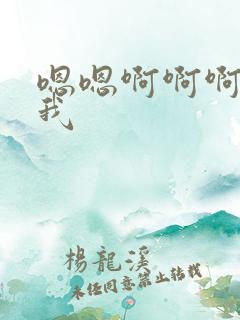 嗯嗯啊啊啊
我
楊龍溪
未任同意禁止转载